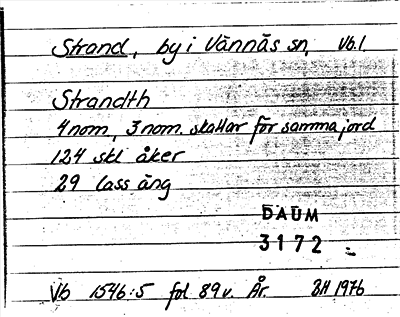 Strand, by i Vännäs sn, Vb.l.
Strandth
4 nom, 3 nom. skattar för samma jord
124 skl åker
29 lass äng
DAUM
3172
Vb 1546:5 fol 89v. År. BH 1976